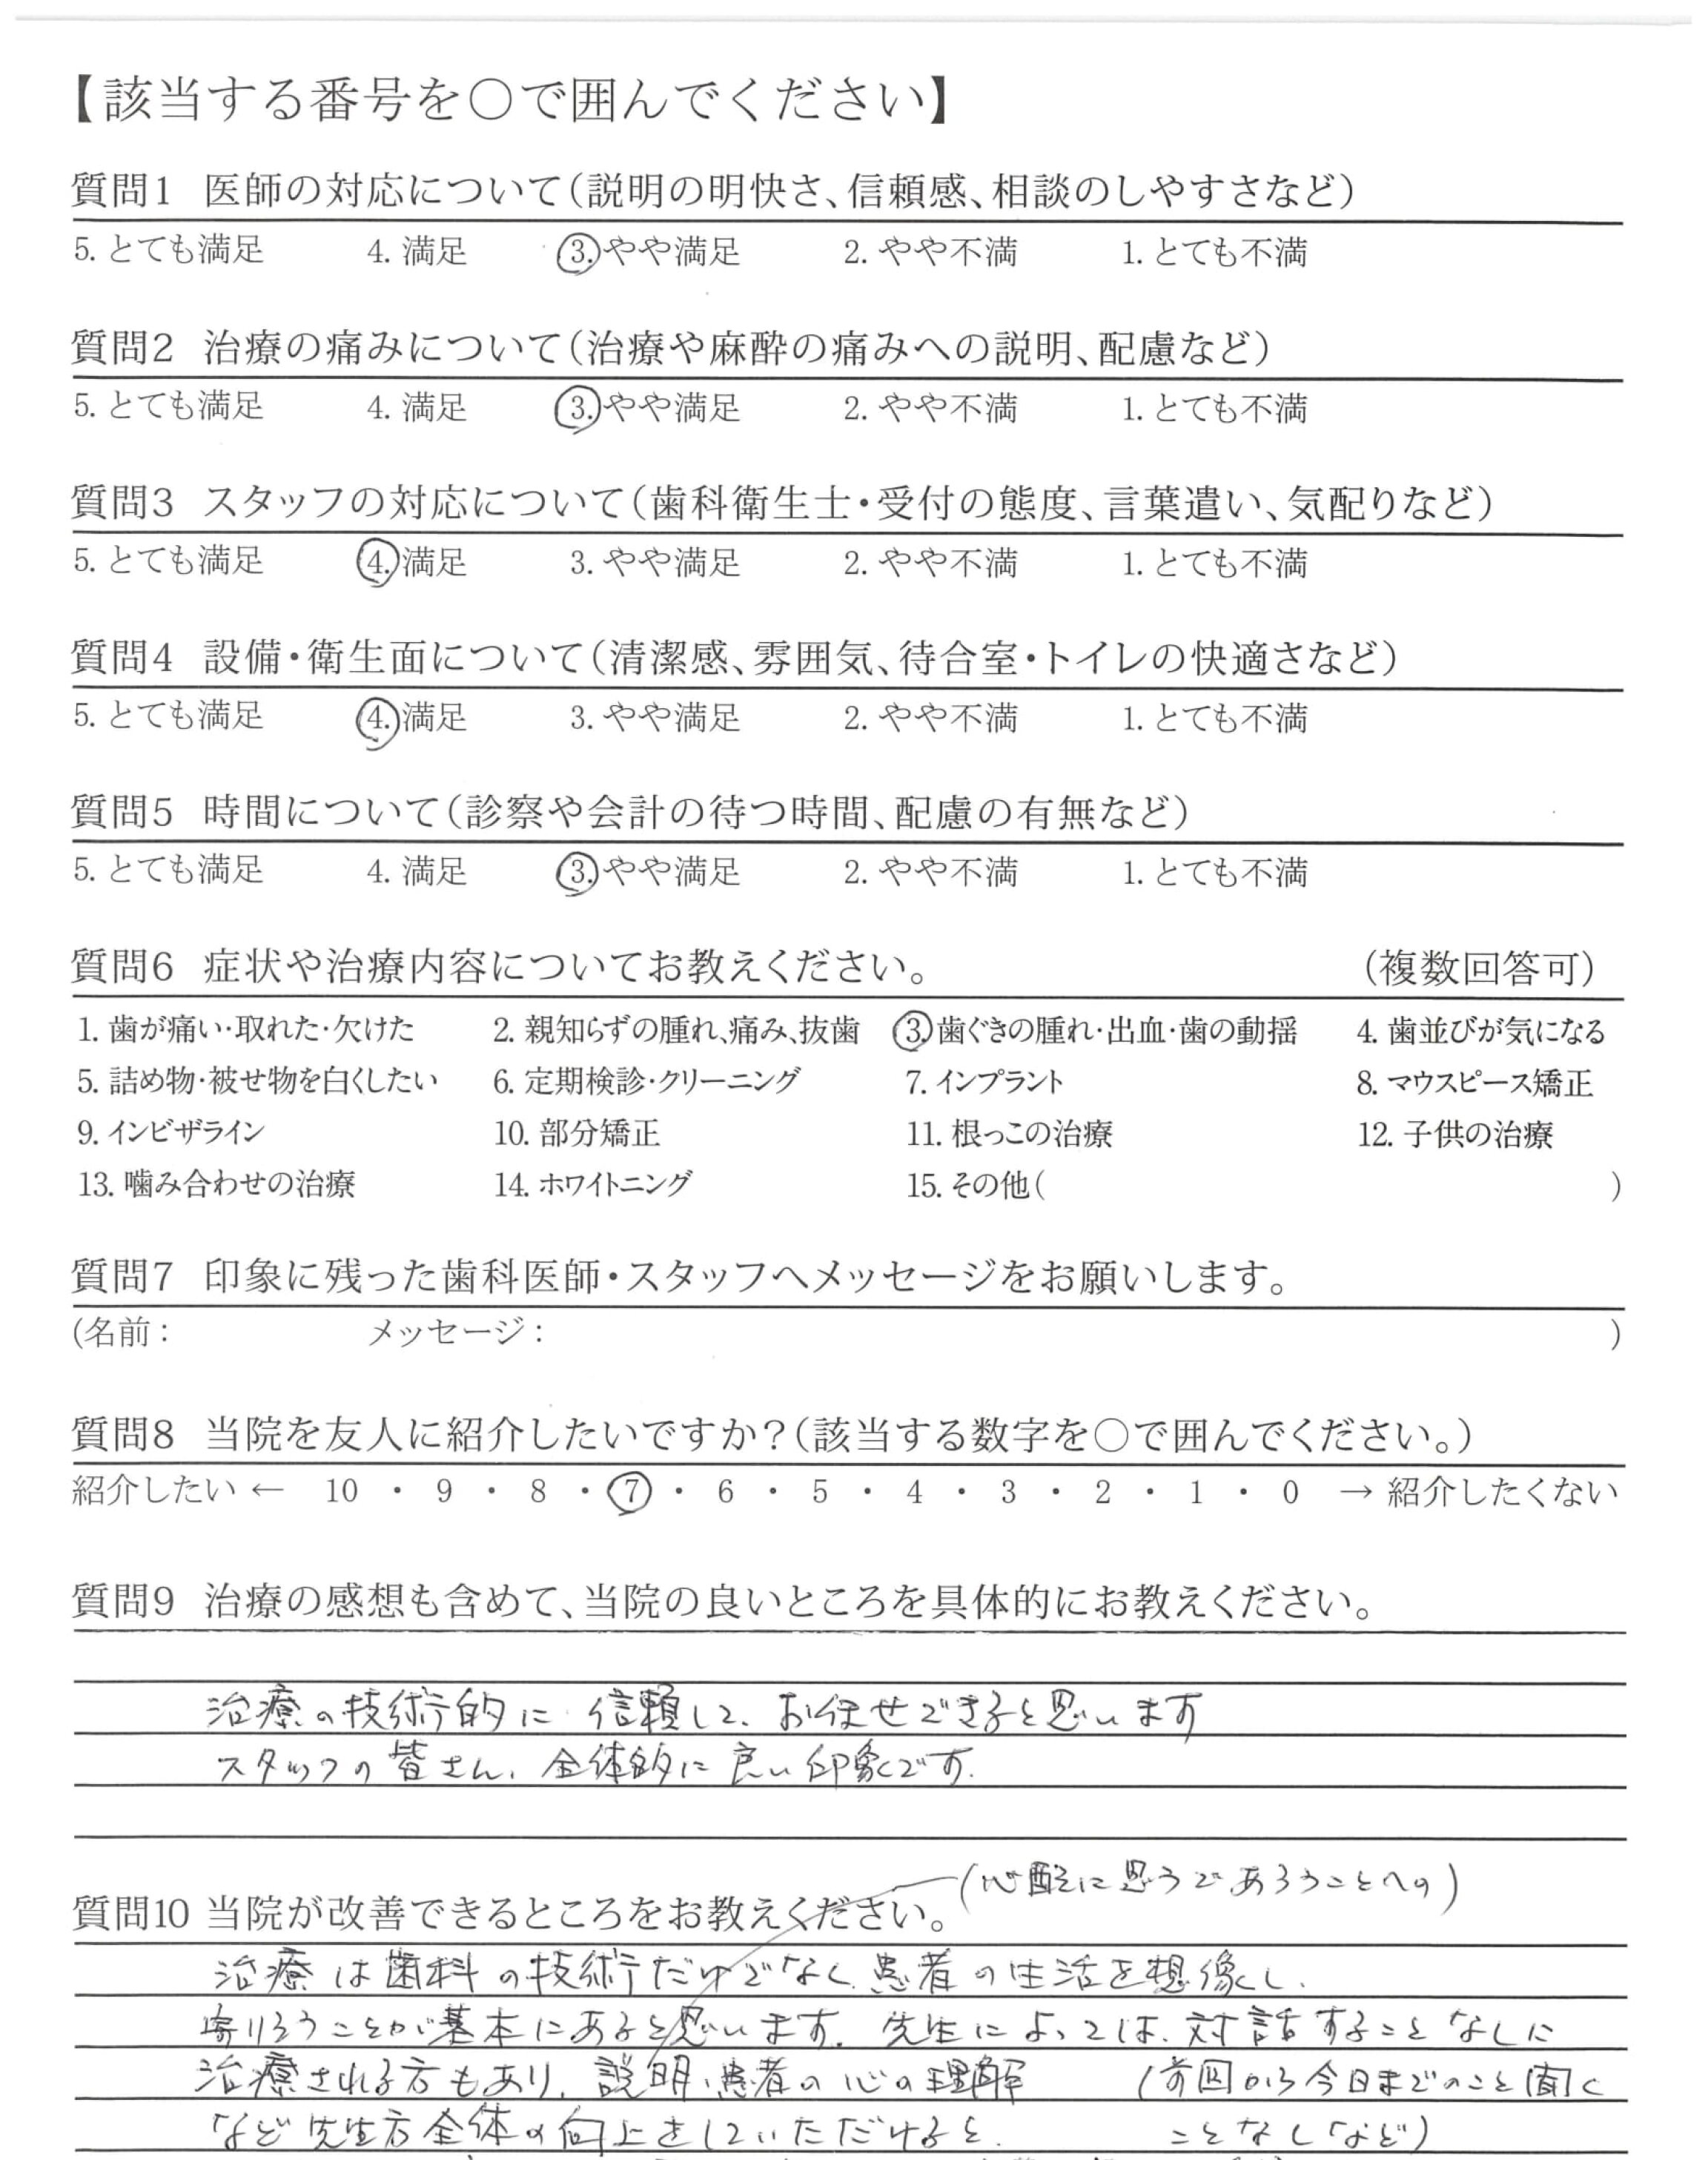 【該当する番号を○で囲んでください】
質問1 医師の対応について(説明の明快さ、信頼感、相談のしやすさなど)
5. とても満足 4. 満足 3. やや満足 2. やや不満 1. とても不満
質問2 治療の痛みについて(治療や麻酔の痛みへの説明、配慮など)
5. とても満足 4. 満足 3. やや満足 2. やや不満 1. とても不満
質問3 スタッフの対応について(歯科衛生士・受付の態度、言葉遣い、気配りなど)
5. とても満足 4. 満足 3. やや満足 2. やや不満 1. とても不満
質問4 設備・衛生面について(清潔感、雰囲気、待合室・トイレの快適さなど)
5. とても満足 4. 満足 3. やや満足 2. やや不満 1. とても不満
質問5 時間について(診察や会計の待つ時間、配慮の有無など)
5. とても満足 4. 満足 3. やや満足 2. やや不満 1. とても不満
質問6 症状や治療内容についてお教えください。 (複数回答可)
1. 歯が痛い・取れた・欠けた 2. 親知らずの腫れ、痛み、抜歯 3. 歯ぐきの腫れ・出血・歯の動揺 4. 歯並びが気になる
5. 詰め物・被せ物を白くしたい 6. 定期検診・クリーニング 7. インプラント 8. マウスピース矯正
9. インビザライン 10. 部分矯正 11. 根っこの治療 12. 子供の治療
13. 噛み合わせの治療 14. ホワイトニング 15. その他( )
質問7 印象に残った歯科医師・スタッフへメッセージをお願いします。
(名前: メッセージ: )
質問8 当院を友人に紹介したいですか?(該当する数字を○で囲んでください。)
紹介したい ← 10 ・ 9 ・ 8 ・ 7 ・ 6 ・ 5 ・ 4 ・ 3 ・ 2 ・ 1 ・ 0 → 紹介したくない
質問9 治療の感想も含めて、当院の良いところを具体的にお教えください。
治療の技術的に信頼して、お任せできると思います
スタッフの皆さん、全体的に良い印象です.
(心配に思うであろうことへの)
質問10 当院が改善できるところをお教えください。
治療は歯科の技術だけでなく、患者の生活を想像し、
寄りそうことが基本にあると思います. 先生によっては、対話することなしに
治療される方もあり、説明、患者の心の理解 (前回から今日までのこと聞く
など先生方全体の向上をしていただけると. ことなしなど)